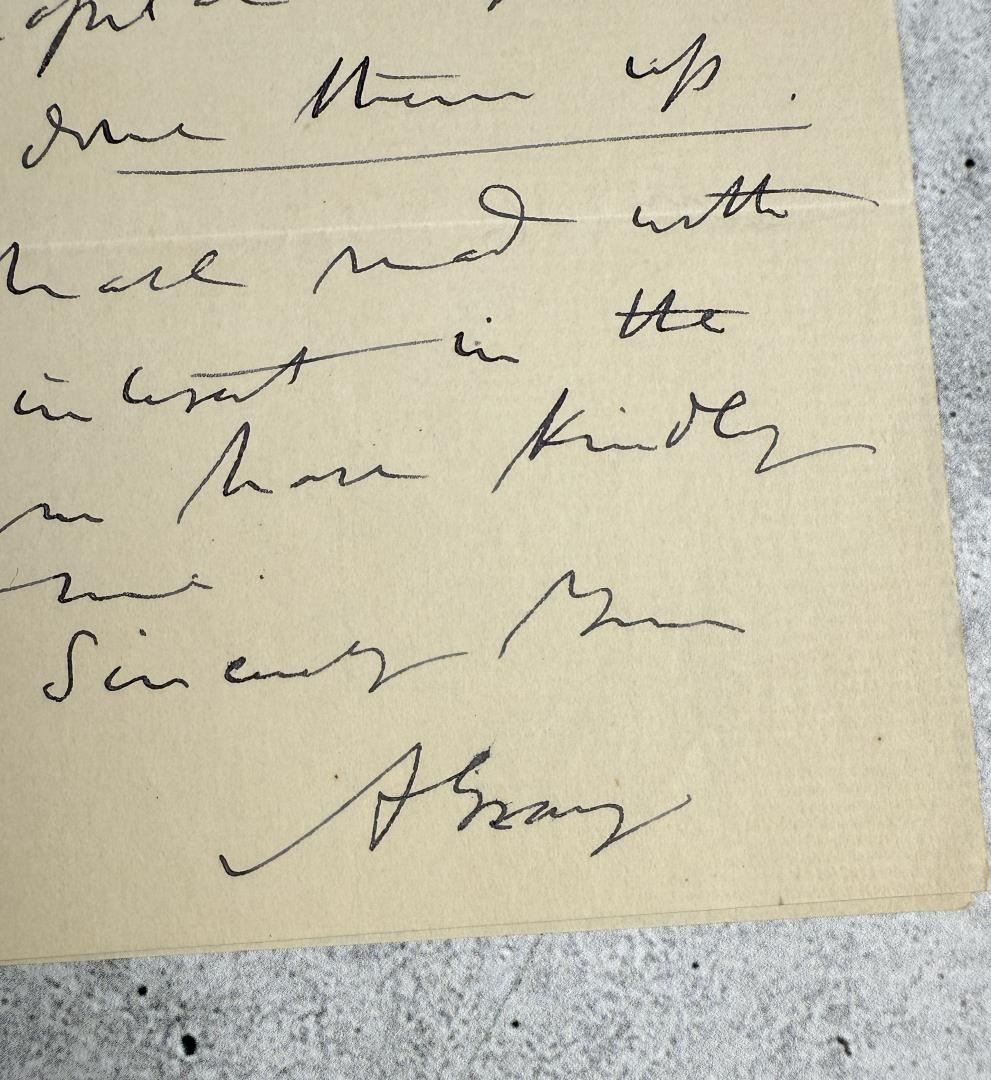 done them up.
have read with
interest in the
have kindly
me.
Sincerely Yours
A Gray